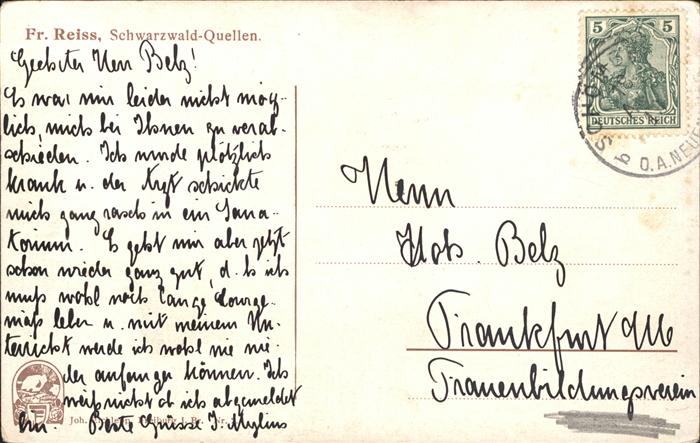 Fr. Reiss, Schwarzwald-Quellen.
Geehrter Herr Belz!
Es war mir leider nicht mög-
lich, mich bei Ihnen zu verab-
schieden. Ich wurde plötzlich
krank u. der Arzt schickte
mich ganz rasch in ein Sana-
torium. Es geht mir aber jetzt
schon wieder ganz gut, d. h. ich
muß wohl noch lange
leben u. mit meinem Un-
terricht werde ich wohl nie wie-
der anfangen können. Ich
weiß nicht ob ich abgemeldet
bin. Beste Grüsse J. Mylius
Joh.
5 5
DEUTSCHES REICH
SCHÖM
b O.A. NEU
Herrn
Belz
Frankfurt a/M
Frauenbildungsverein